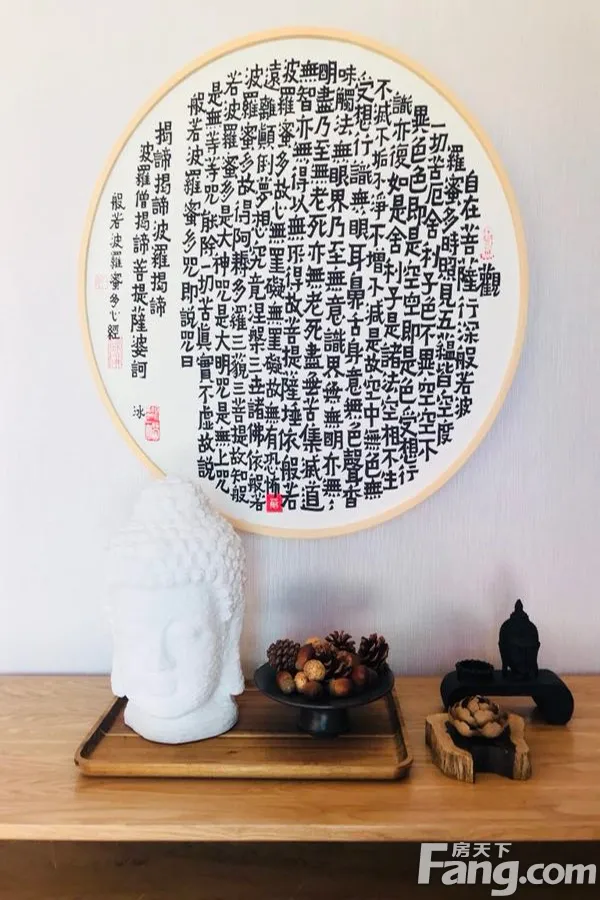 觀
自在菩薩行深般若波
羅蜜多時照見五蘊皆空度
一切苦厄舍利子色不異空空不
異色色即是空空即是色受想行
識亦復如是舍利子是諸法空相不生
不滅不垢不淨不增不減是故空中無色無
受想行識無眼耳鼻舌身意無色聲香
味觸法無眼界乃至無意識界無無明亦無無
明盡乃至無老死亦無老死盡無苦集滅道
無智亦無得以無所得故菩提薩埵依般若
波羅蜜多故心無罣礙無罣礙故無有恐怖
遠離顛倒夢想究竟涅槃三世諸佛依般若
波羅蜜多故得阿耨多羅三藐三菩提故知般
若波羅蜜多是大神咒是大明咒是無上咒
是無等等咒能除一切苦真實不虛故說
般若波羅蜜多咒即說咒曰
揭諦揭諦波羅揭諦
波羅僧揭諦菩提薩婆訶
冰
般若波羅蜜多心經
房天下
Fang.com